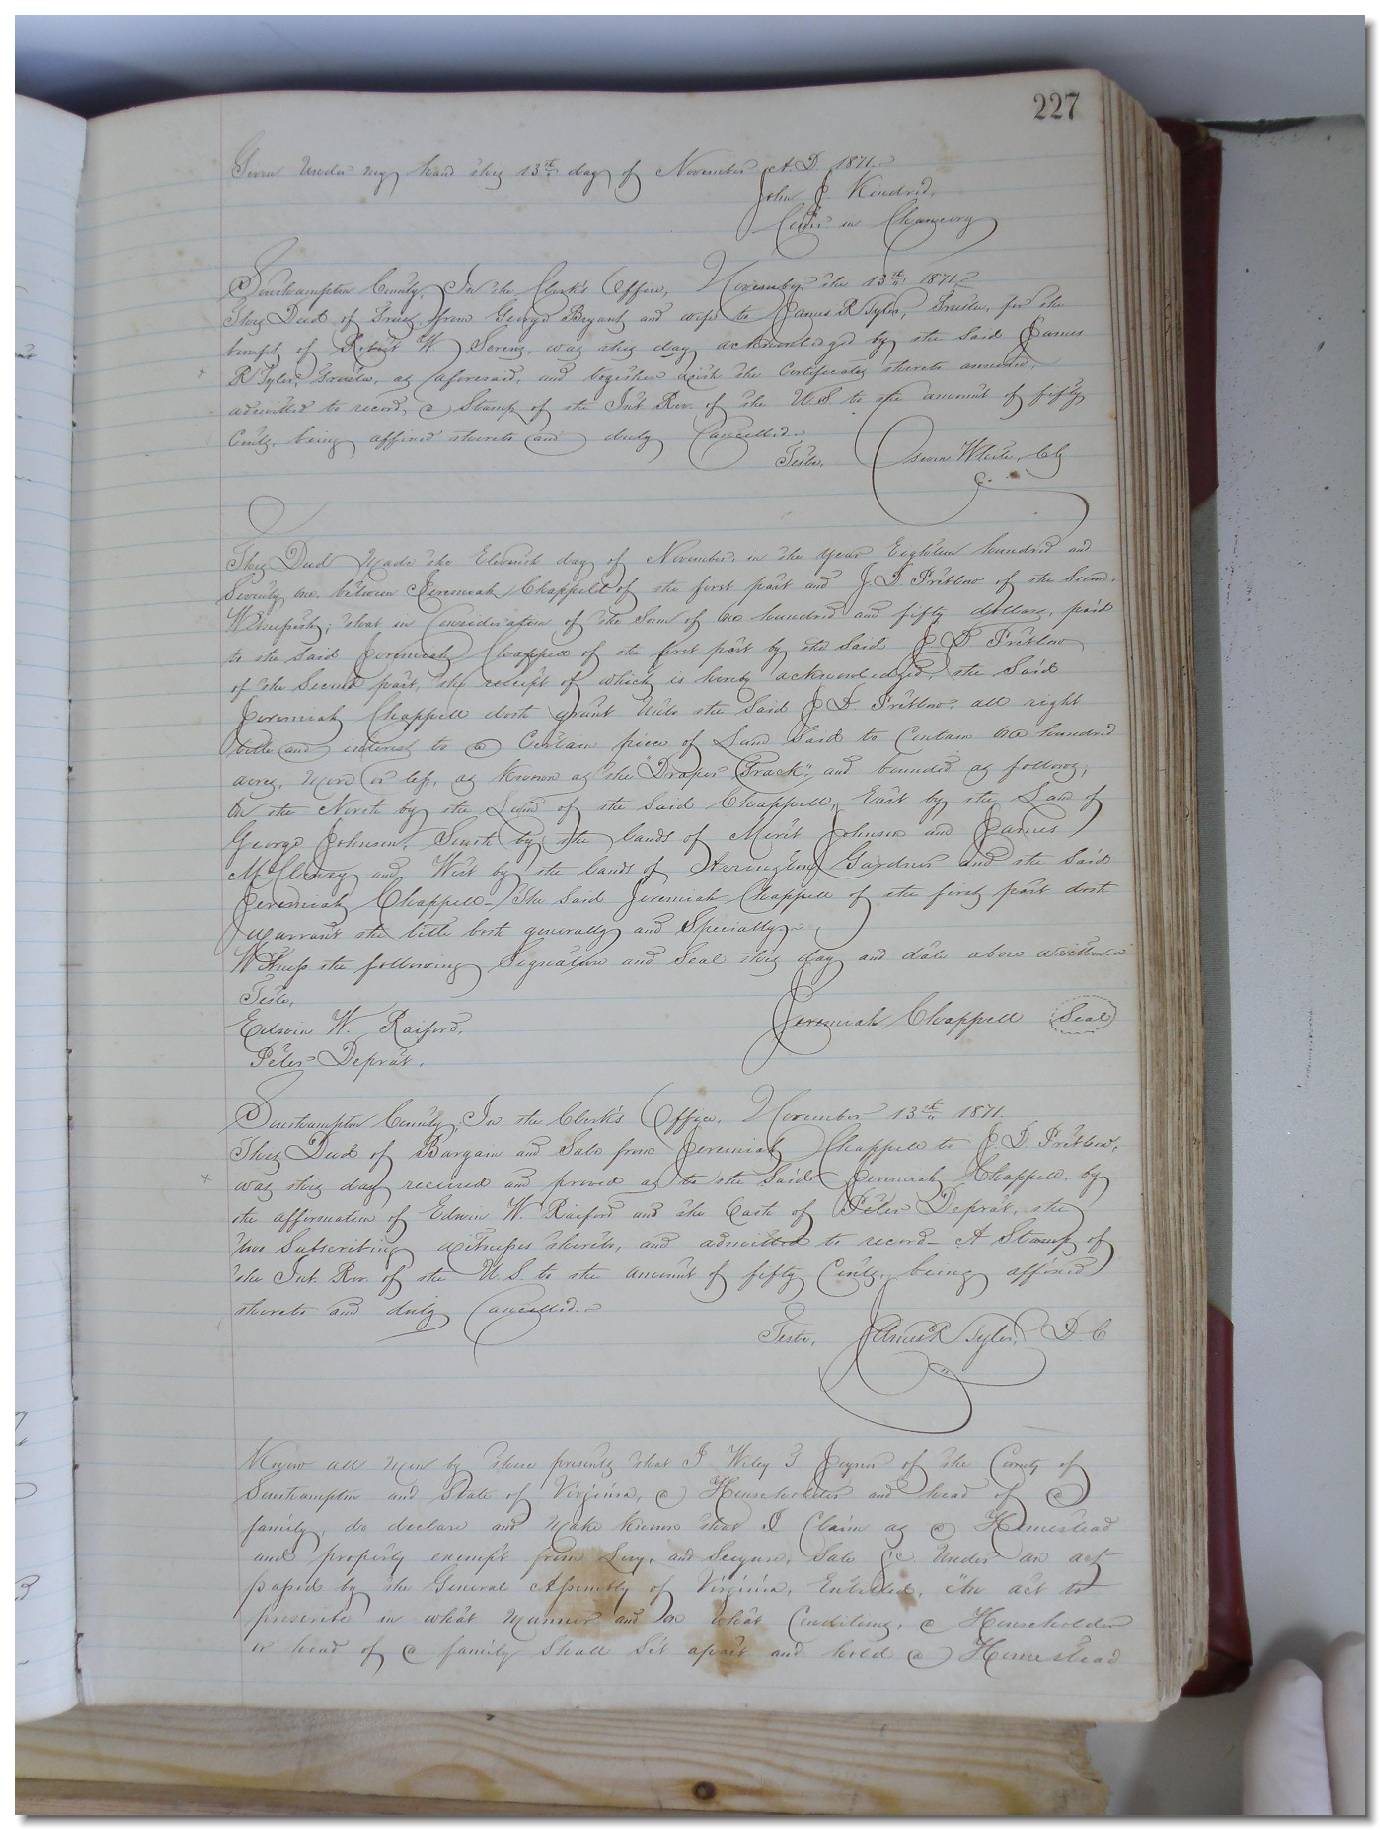 227
Given under my hand this 13th day of November A.D. 1871.
John J. Kindred,
Comr in Chancery
Southampton County, In the Clerk's Office, November the 13th 1871.
This Deed of Trust from George Bryant and wife to James R Tyler, Trustee, for the
benefit of Robert W. was this day acknowledged by the said James
R Tyler, Trustee, as aforesaid, and together with the Certificates thereto annexed,
admitted to record, a Stamp of the Int Rev. of the U.S to the amount of fifty
Cents, being affixed thereto and duly Cancelled.
Teste, White, Clk
This Deed Made the Eleventh day of November, in the year Eighteen hundred and
Seventy one, between Jeremiah Chappell of the first part and J. D Pretlow of the Second.
Witnesseth; that in Consideration of the Sum of hundred and fifty dollars, paid
to the Said Jeremiah Chappell of the first part by the Said J. D Pretlow
of the Second part, the receipt of which is hereby acknowledged, the Said
Jeremiah Chappell doth grant unto the Said J D. Pretlow, all right
title and interest to a Certain piece of Land Said to Contain hundred
acres, more or less, as known as the "Draper Track" and bounded as follows;
On the North by the Land of the Said Chappell, East by the Land of
George Johnson, South by the lands of Merit Johnson and James
McClenny and West by the lands of Gardner and the Said
Jeremiah Chappell. The Said Jeremiah Chappell of the first part doth
Warrant the title both generally and Specially.
Witness the following Signature and Seal this day and date above written
Teste,
Edwin W. Raiford, Jeremiah Chappell Seal
Peter Deprat.
Southampton County, In the Clerk's Office, November 13th 1871.
This Deed of Bargain and Sale from Jeremiah Chappell to J D Pretlow,
was this day received and proved as to the Said Jeremiah Chappell by
the affirmation of Edwin W. Raiford and the Oath of Peter Deprat, the
two Subscribing witnesses thereto, and admitted to record A Stamp of
the Int. Rev. of the U.S to the amount of fifty Cents, being affixed
thereto and duly Cancelled.
Teste, James R Tyler, D.C
Know all Men by these presents that I Wiley J Joyner of the County of
Southampton and State of Virginia, a Householder and head of a
family, do declare and Make known that I Claim as a Homestead
and property exempt from Levy, and Seizure, Sale &c. Under an act
passed by the General Assembly of Virginia, Entitled, "An act to
prescribe in what Manner and on what Conditions, a Householder
or head of a family Shall Set apart and hold a Homestead